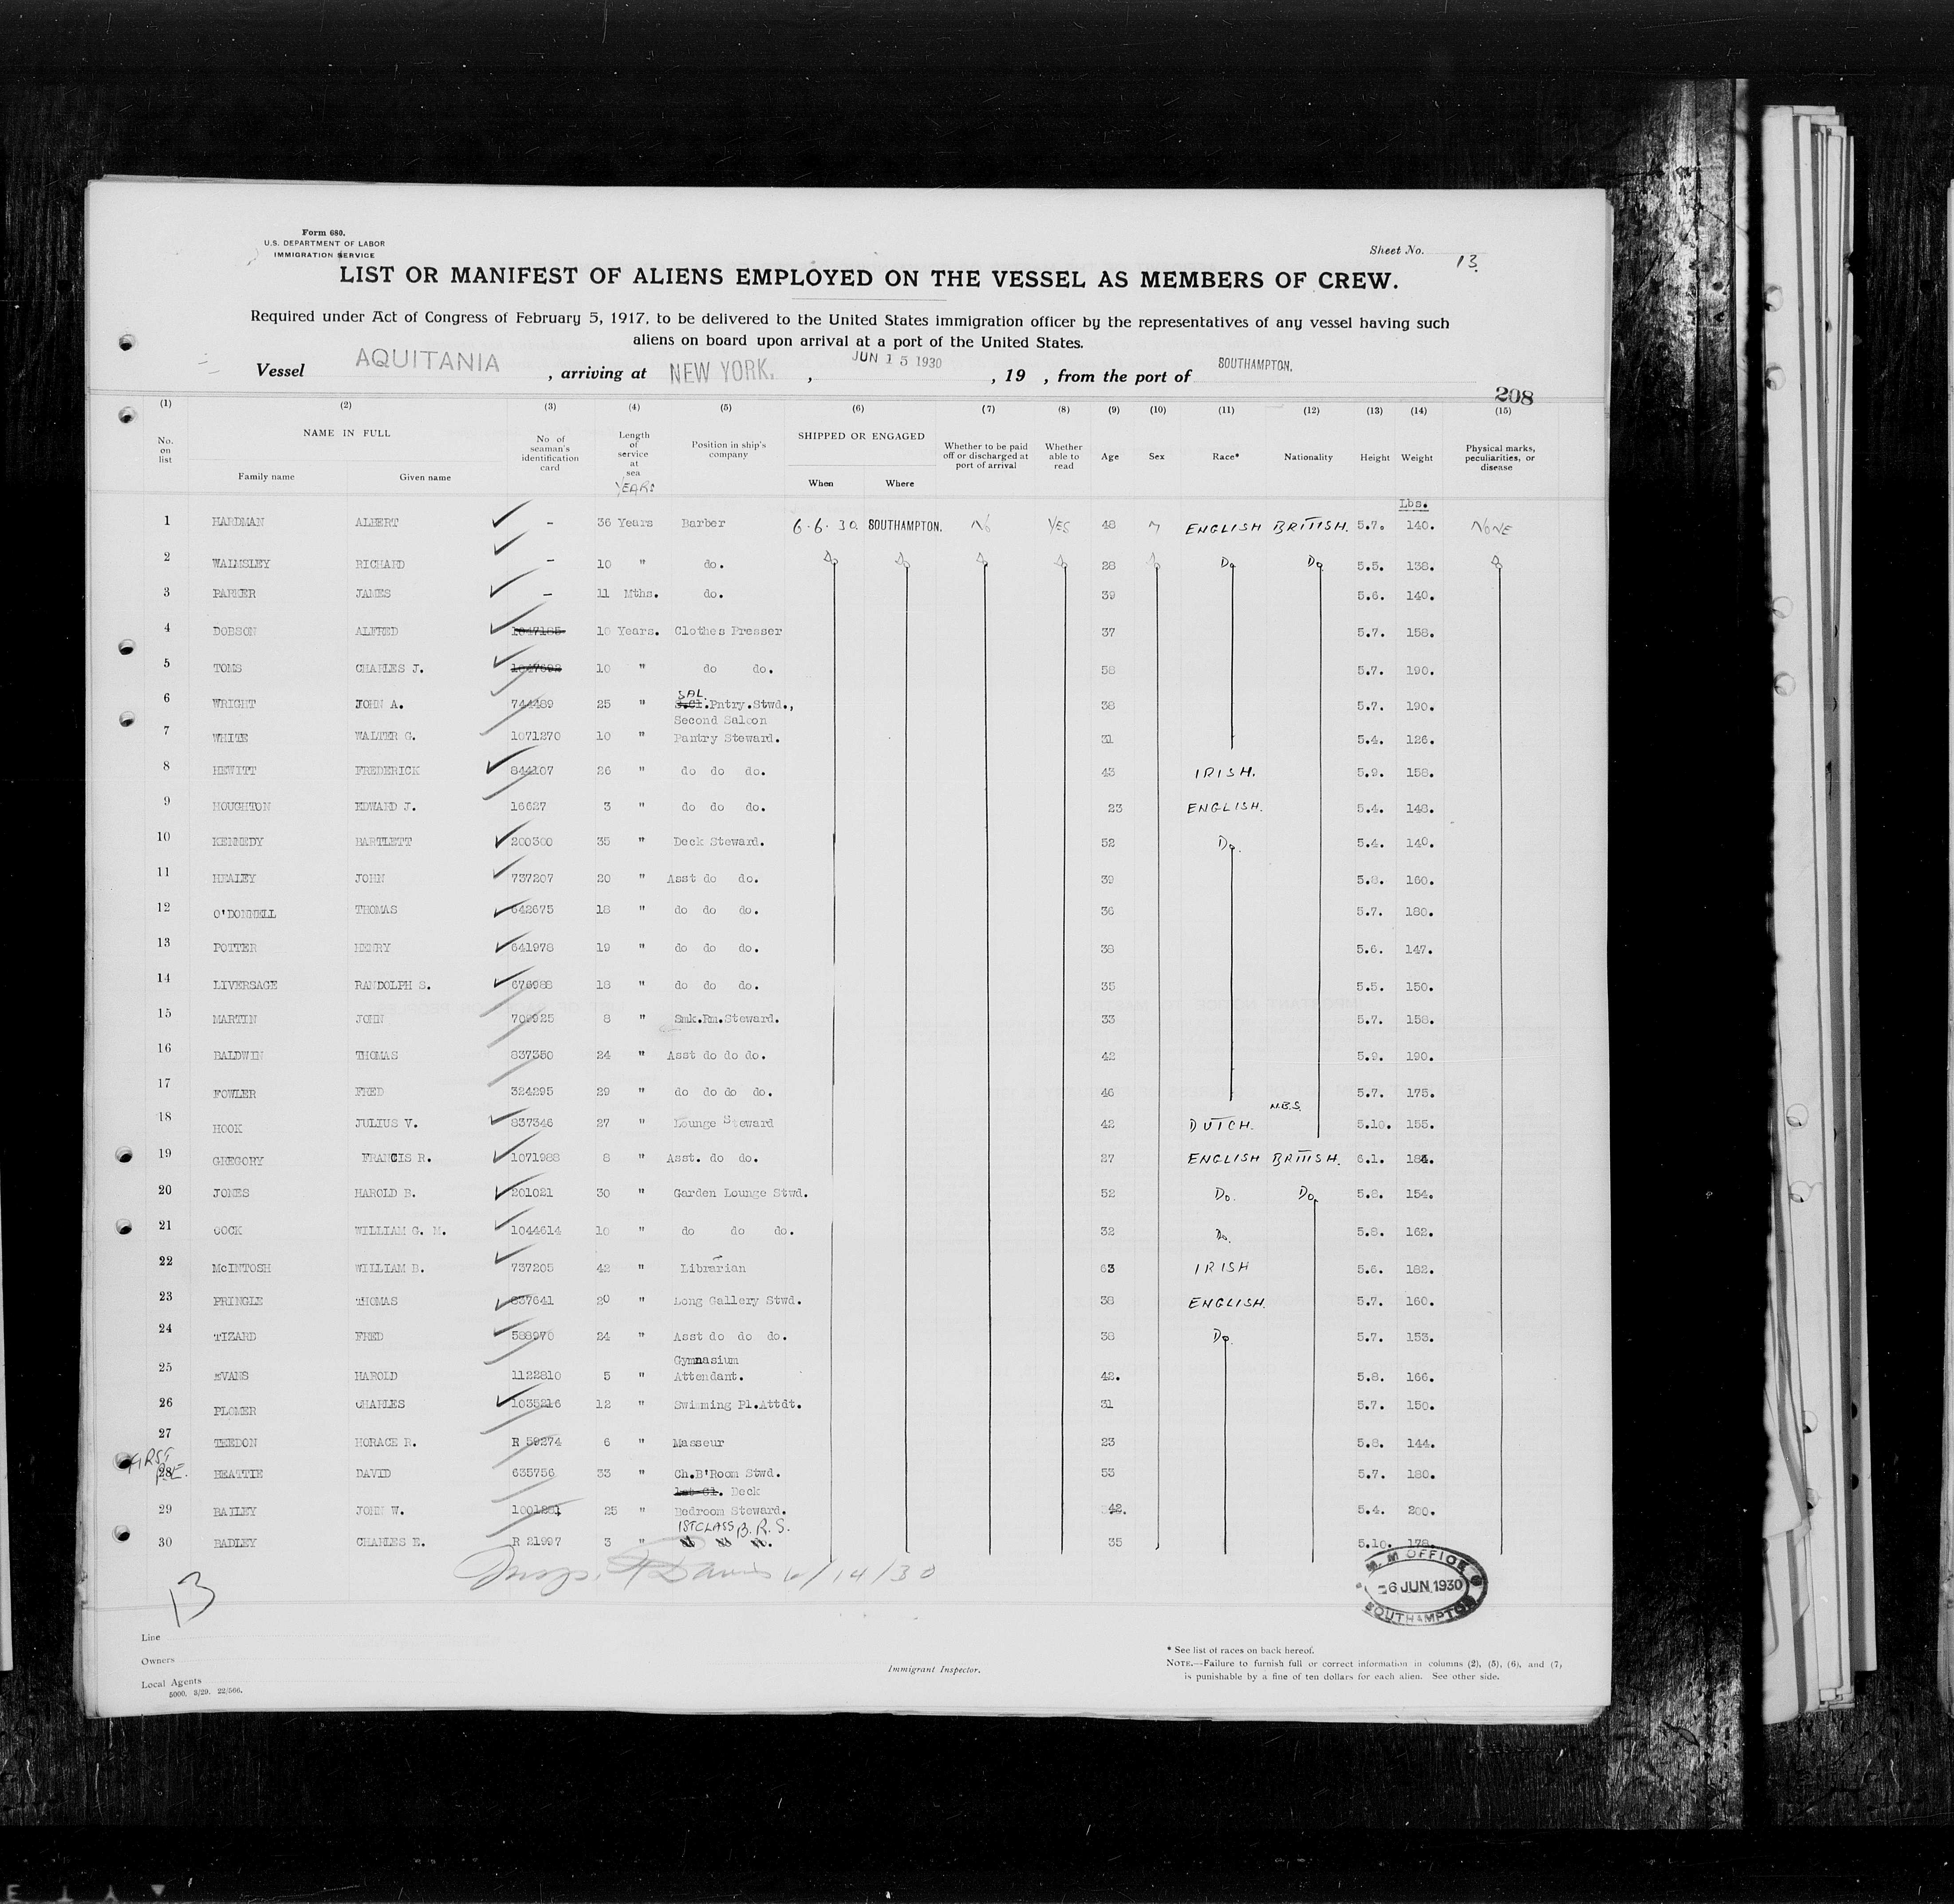 Form 680.
U.S. DEPARTMENT OF LABOR
IMMIGRATION SERVICE
Sheet No. 13.
LIST OR MANIFEST OF ALIENS EMPLOYED ON THE VESSEL AS MEMBERS OF CREW.
Required under Act of Congress of February 5, 1917, to be delivered to the United States immigration officer by the representatives of any vessel having such
aliens on board upon arrival at a port of the United States.
Vessel AQUITANIA , arriving at NEW YORK. , JUN 15 1930 , 19 , from the port of SOUTHAMPTON.
208
(1) (2) (3) (4) (5) (6) (7) (8) (9) (10) (11) (12) (13) (14) (15)
No. on list NAME IN FULL Family name Given name No of seaman's identification card Length of service at sea YEARS Position in ship's company SHIPPED OR ENGAGED When Where Whether to be paid off or discharged at port of arrival Whether able to read Age Sex Race* Nationality Height Weight Physical marks, peculiarities, or disease
Lbs.
1 HARDMAN ALBERT - 36 Years Barber 6.6.30. SOUTHAMPTON. No YES 48 M ENGLISH BRITISH. 5.7. 140. NONE
2 WALMSLEY RICHARD - 10 " do. Do Do Do Do 28 Do Do Do 5.5. 138. Do
3 PARKER JAMES - 11 Mths. do. 39 5.6. 140.
4 DOBSON ALFRED 1047185 10 Years. Clothes Presser 37 5.7. 158.
5 TOMS CHARLES J. 1047692 10 " do do. 58 5.7. 190.
6 WRIGHT JOHN A. 744489 25 " SAL. Pntry.Stwd., 38 5.7. 190.
Second Saloon
7 WHITE WALTER G. 1071270 10 " Pantry Steward. 31 5.4. 126.
8 HEWITT FREDERICK 844107 26 " do do do. 43 IRISH. 5.9. 158.
9 HOUGHTON EDWARD J. 16627 3 " do do do. 23 ENGLISH. 5.4. 148.
10 KENNEDY BARTLETT 200300 35 " Deck Steward. 52 Do. 5.4. 140.
11 HEALEY JOHN 737207 20 " Asst do do. 39 5.8. 160.
12 O'DONNELL THOMAS 642675 18 " do do do. 36 5.7. 180.
13 POTTER HENRY 641978 19 " do do do. 38 5.6. 147.
14 LIVERSAGE RANDOLPH S. 676988 18 " do do do. 35 5.5. 150.
15 MARTIN JOHN 702925 8 " Smk.Rm.Steward. 33 5.7. 158.
16 BALDWIN THOMAS 837350 24 " Asst do do do. 42 5.9. 190.
17 FOWLER FRED 324295 29 " do do do do. 46 5.7. 175.
N.B.S.
18 HOOK JULIUS V. 837346 27 " Lounge Steward 42 DUTCH. 5.10. 155.
19 GREGORY FRANCIS R. 1071988 8 " Asst. do do. 27 ENGLISH BRITISH. 6.1. 184.
20 JONES HAROLD B. 201021 30 " Garden Lounge Stwd. 52 Do. Do. 5.8. 154.
21 COCK WILLIAM G. M. 1044614 10 " do do do. 32 Do. 5.8. 162.
22 McINTOSH WILLIAM B. 737205 42 " Librarian 63 IRISH 5.6. 182.
23 PRINGLE THOMAS 837641 20 " Long Gallery Stwd. 38 ENGLISH. 5.7. 160.
24 TIZARD FRED 588970 24 " Asst do do do. 38 Do. 5.7. 153.
Gymnasium
25 EVANS HAROLD 1122810 5 " Attendant. 42. 5.8. 166.
26 PLOMER CHARLES 1035216 12 " Swimming Pl.Attdt. 31 5.7. 150.
27 TEEDON HORACE R. R 59274 6 " Masseur 23 5.8. 144.
28 BEATTIE DAVID 635756 33 " Ch.B'Room Stwd. 53 5.7. 180.
1st Cl. Deck
29 BAILEY JOHN W. 1001281 25 " Bedroom Steward. 42. 5.4. 200.
1ST CLASS B.R.S.
30 BADLEY CHARLES E. R 21997 3 " 35 5.10. 178.
Davis 6/14/30
13
M. M OFFICE
-6 JUN 1930
SOUTHAMPTON
Line
Owners
Local Agents
5000. 3/29. 22/566.
Immigrant Inspector.
* See list of races on back hereof.
NOTE.—Failure to furnish full or correct information in columns (2), (5), (6), and (7)
is punishable by a fine of ten dollars for each alien. See other side.